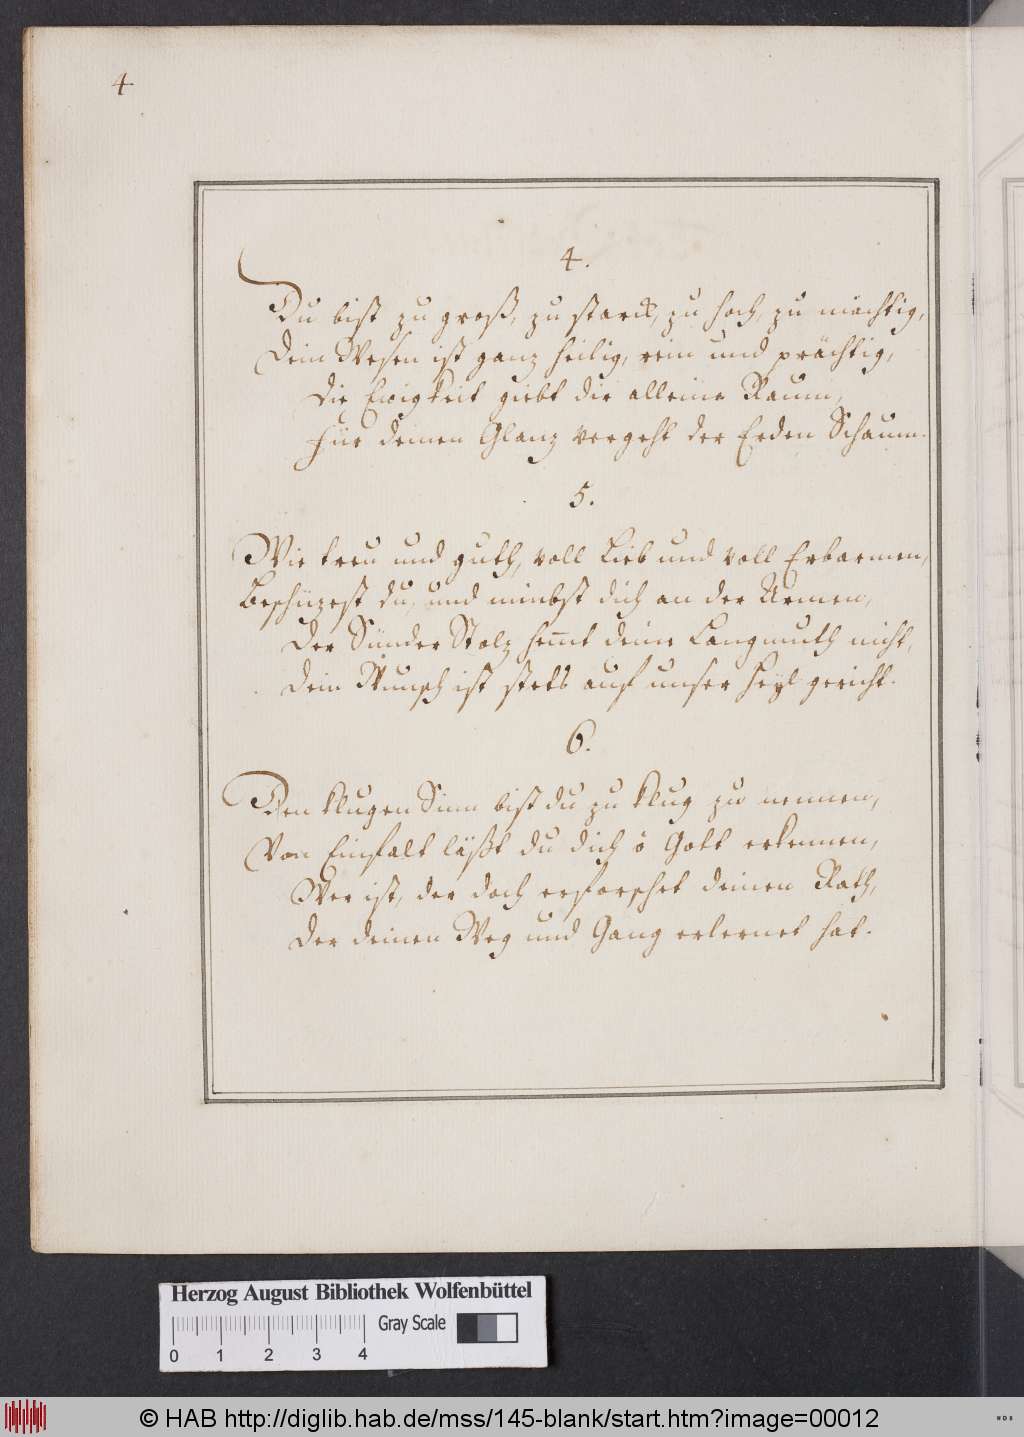 4
4.
Du bist zu groß, zu starck, zu hoch, zu mächtig,
Dein Wesen ist ganz heilig, rein und prächtig,
Die Ewigkeit giebt dir alleine Raum,
Für deinen Glanz vergeht der Erden Schaum.
5.
Wie treu und guth, voll Lieb und voll Erbarmen,
Beschüzest du, und nimbst dich an der Armen,
Der Sünder Stolz hem̅t deine Langmuth nicht,
Dein Wunsch ist stets auf unser Heyl gericht.
6.
Den klugen Sinn bist du zu klug zu nennen,
Von Einfalt läßt du dich ô Gott erkennen,
Wer ist, der doch erforschet deinen Rath,
Der deinen Weg und Gang erlernet hat.
Herzog August Bibliothek Wolfenbüttel
Gray Scale
0 1 2 3 4
© HAB http://diglib.hab.de/mss/145-blank/start.htm?image=00012